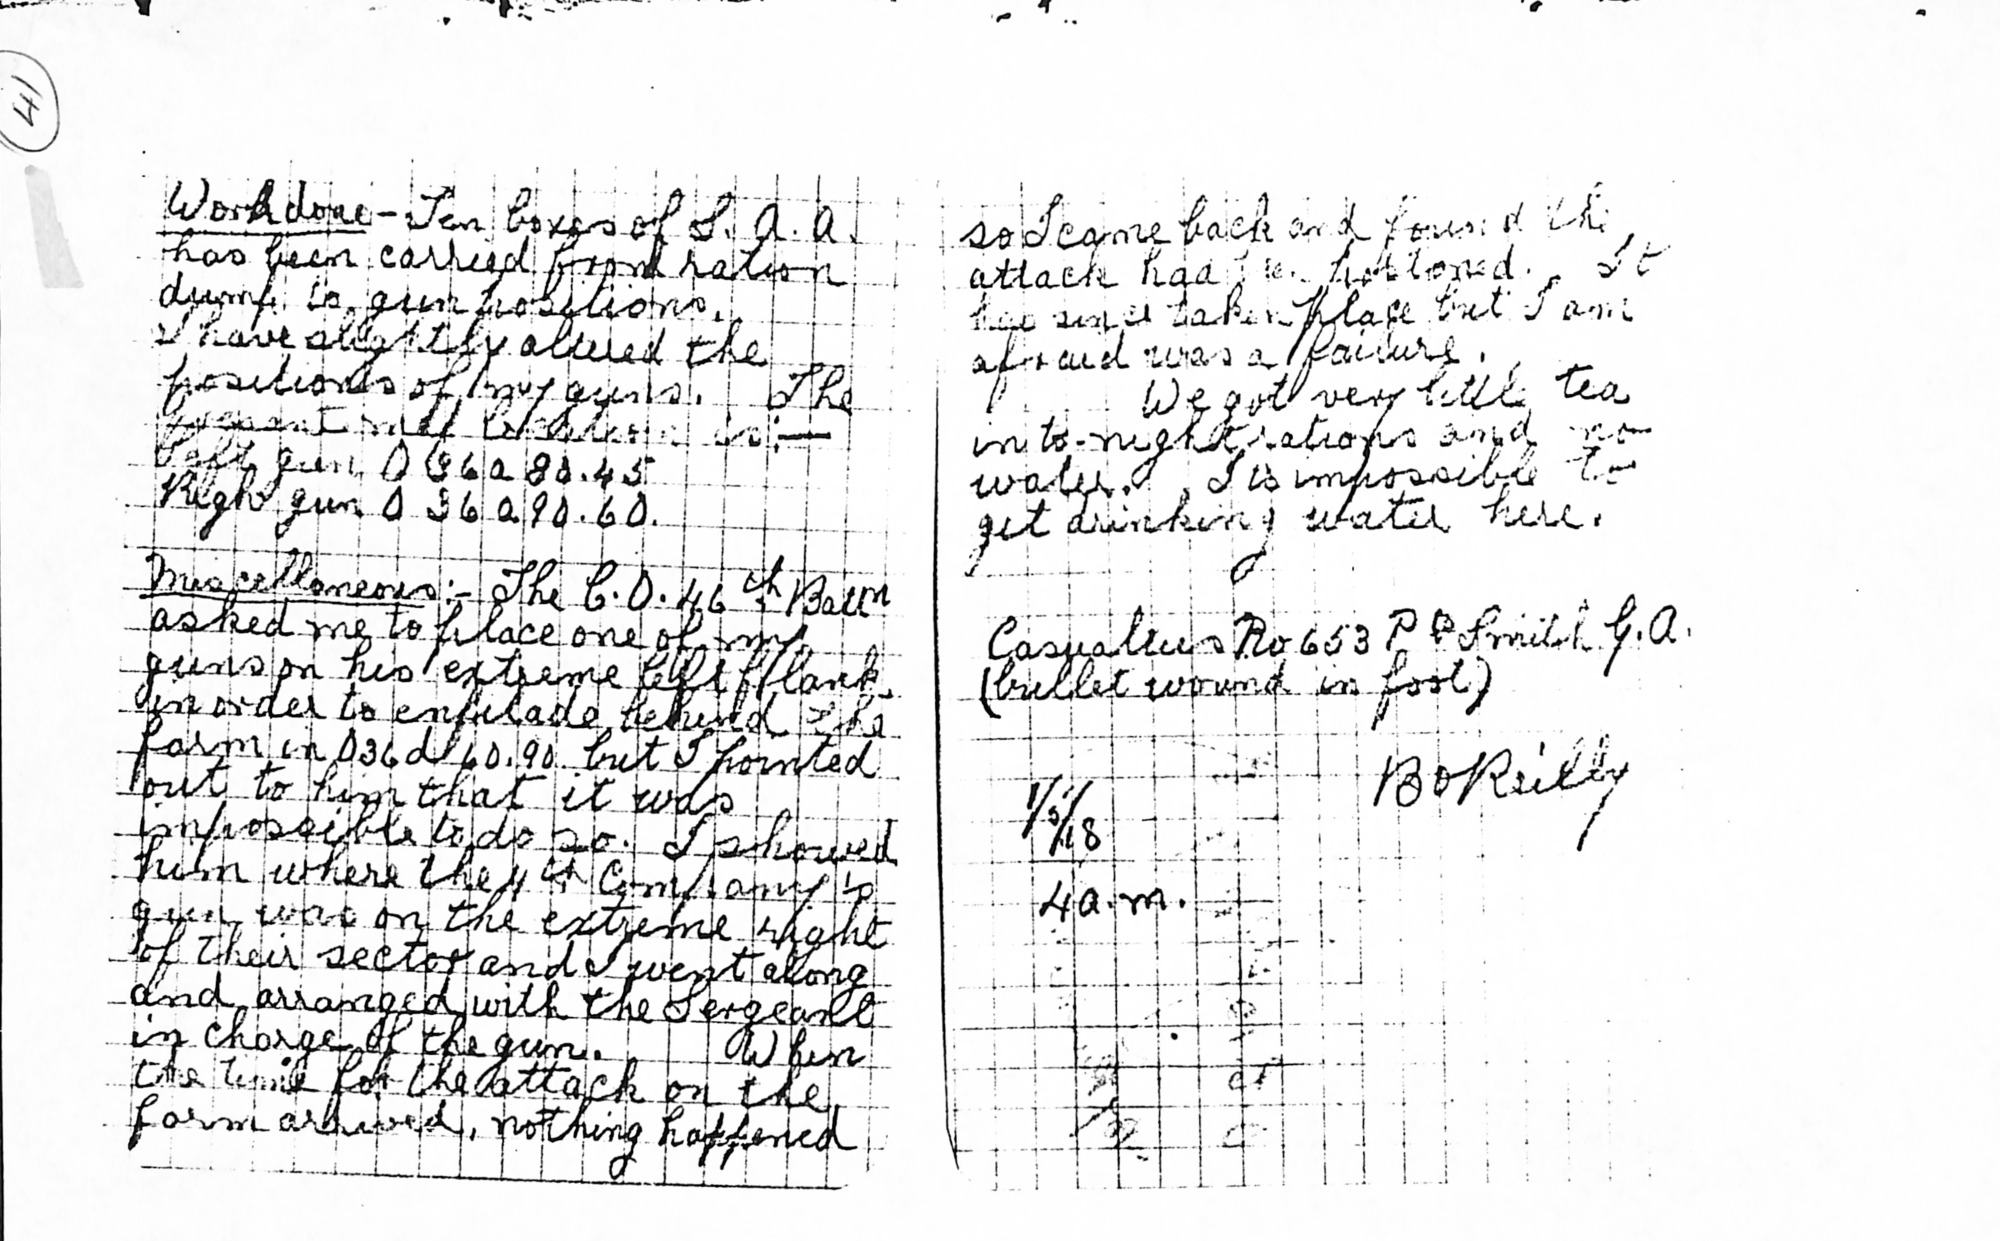 41
Work done - Ten boxes of S. A. A.
has been carried from ration
dump to gun positions.
I have slightly altered the
positions of my guns. The
present map location is:—
Left gun O 36 a 80.45
Righ gun O 36 a 90.60.
Miscellaneous:- The C.O. 46th Battn
asked me to place one of my
guns on his extreme left flank
in order to enfilade behind the
farm in O36d 60.90 but I pointed
out to him that it was
impossible to do so. I showed
him where the 4th Company's
gun was on the extreme right
of their sector and I went along
and arranged with the Sergeant
in charge of the gun. When
the time for the attack on the
farm arrived, nothing happened
so I came back and found the
attack had been postponed. It
has since taken place but I am
afraid was a failure.
We got very little tea
in to-night rations and no
water. I is impossible to
get drinking water here.
Casualties No 653 Pte Smith G.A.
(bullet wound in foot)
B O'Reilly
1/5/18
4 a.m.